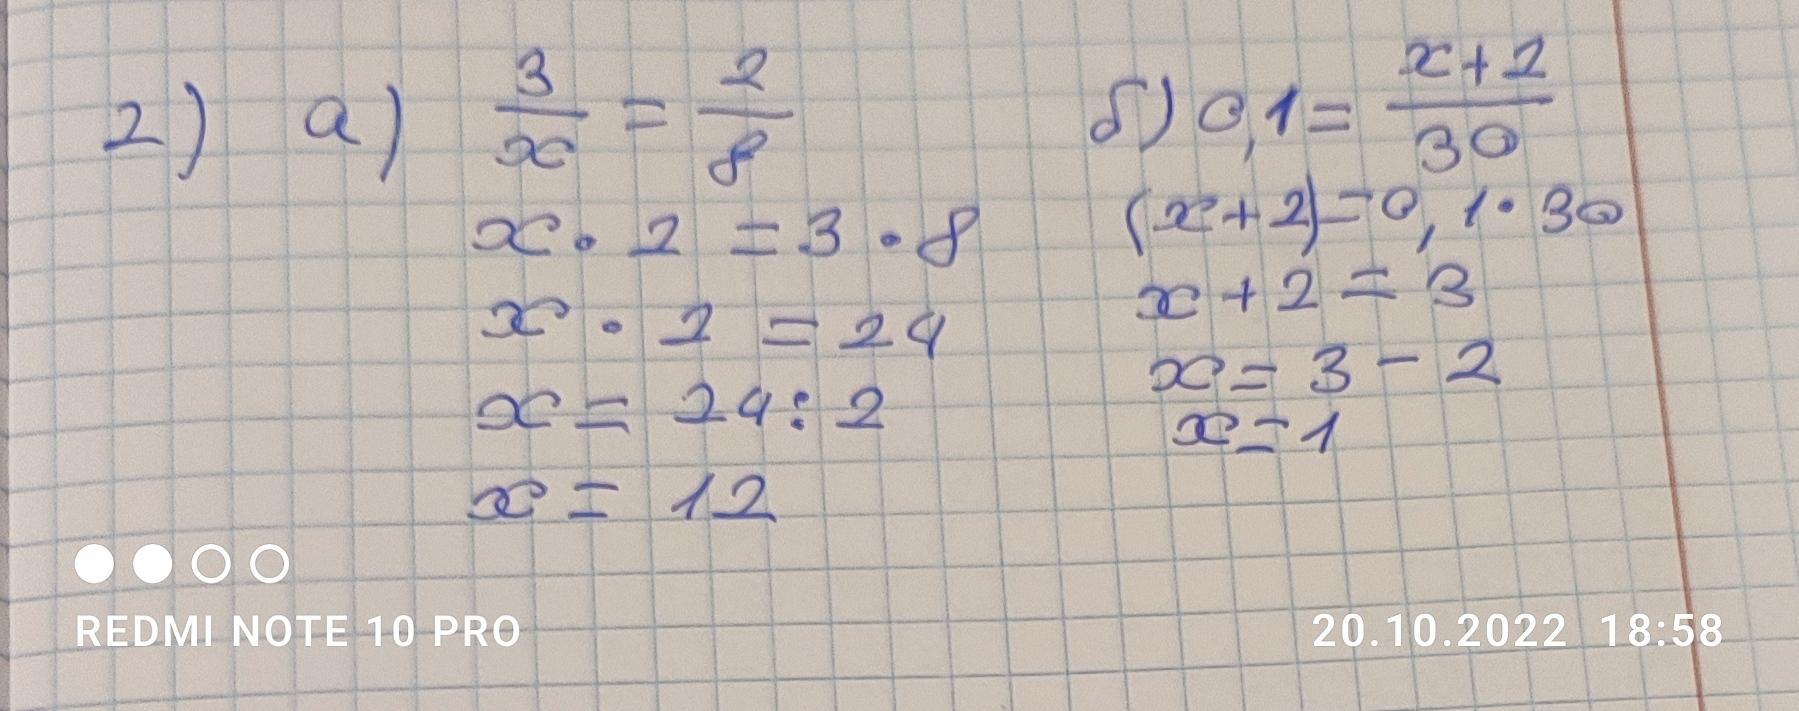 2) а) 3/x = 2/8
x · 2 = 3 · 8
x · 2 = 24
x = 24 : 2
x = 12
б) 0,1 = x+2/30
(x+2) = 0,1 · 30
x + 2 = 3
x = 3 - 2
x = 1
REDMI NOTE 10 PRO
20.10.2022 18:58